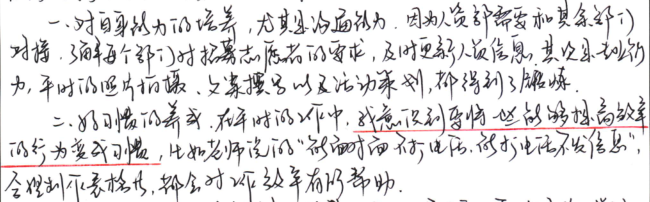 一、对自身能力的培养，尤其是沟通能力。因为人资部需要和其余部门
对接，了解每个部门对招募志愿者的要求，及时更新人员信息。其次是划的能
力，平时的照片拍摄、文案撰写以及活动策划，都得到了锻炼。
二、好习惯的养成。在平时的工作中，我意识到要将一些能够提高效率
的行为变成习惯，比如老师说的“能面对面不打电话，能打电话不发信息”，
合理制作表格等，都会对工作效率有所帮助.